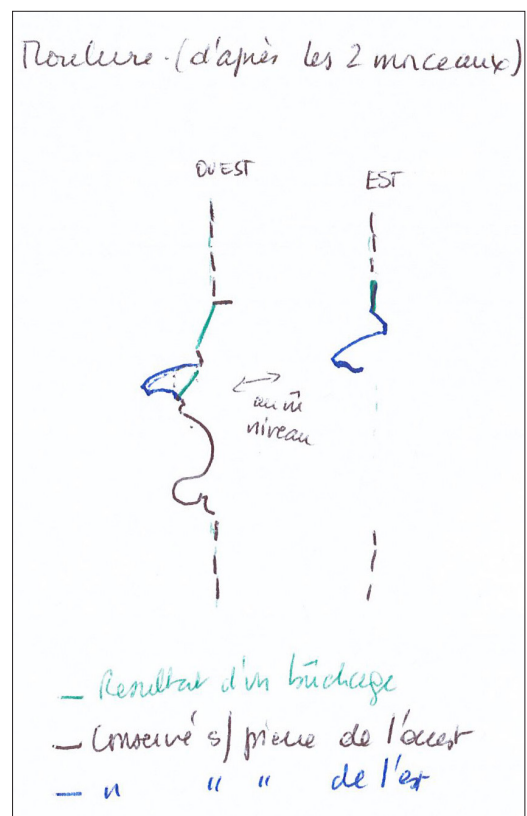 Moulure. (d'après les 2 morceaux)
OUEST
EST
au m̄
niveau
Resultat d'un bûchage
Conservé s/ pierre de l'ouest
n " " de l'est